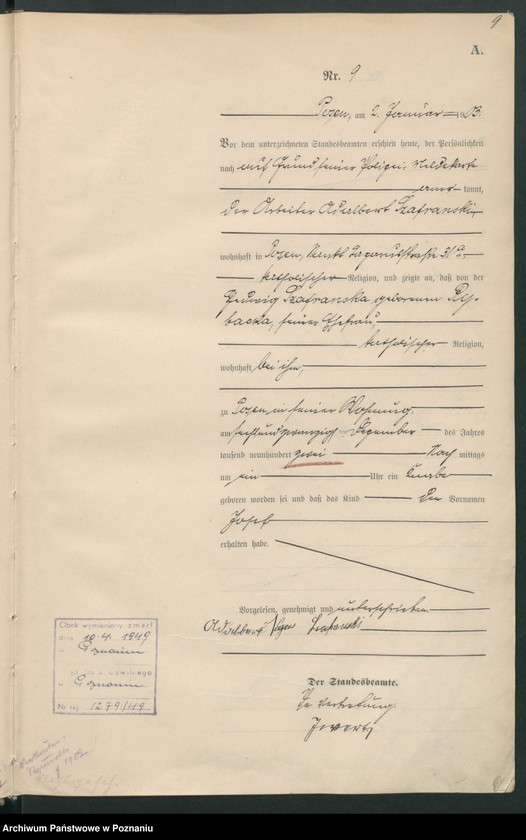 9
A.
Nr. 9
Posen, am 2. Januar 1903.
Vor dem unterzeichneten Standesbeamten erschien heute, der Persönlichkeit
nach auf Grund seiner Polizei-Meldekarte
kannt,
der Arbeiter Adalbert Szafranski
wohnhaft in Posen, Sankt
katholischer Religion, und zeigte an, daß von der
Hedwig Szafranska geborenen Ry-
backa, seiner Ehefrau,
katholischer Religion,
wohnhaft bei ihm,
zu Posen in seiner Wohnung,
am sechsundzwanzigsten Dezember des Jahres
tausend neunhundert zwei Nachmittags
um ein Uhr ein Knabe
geboren worden sei und daß das Kind den Vornamen
Josef
erhalten habe.
Vorgelesen, genehmigt und unterschrieben
Adalbert
Der Standesbeamte.
In Vertretung
Obok wymieniony zmarł
dnia 10.4. 1949
w Poznaniu
Cywilnego
w Poznaniu
Nr rej. 1279/49
Archiwum Państwowe w Poznaniu